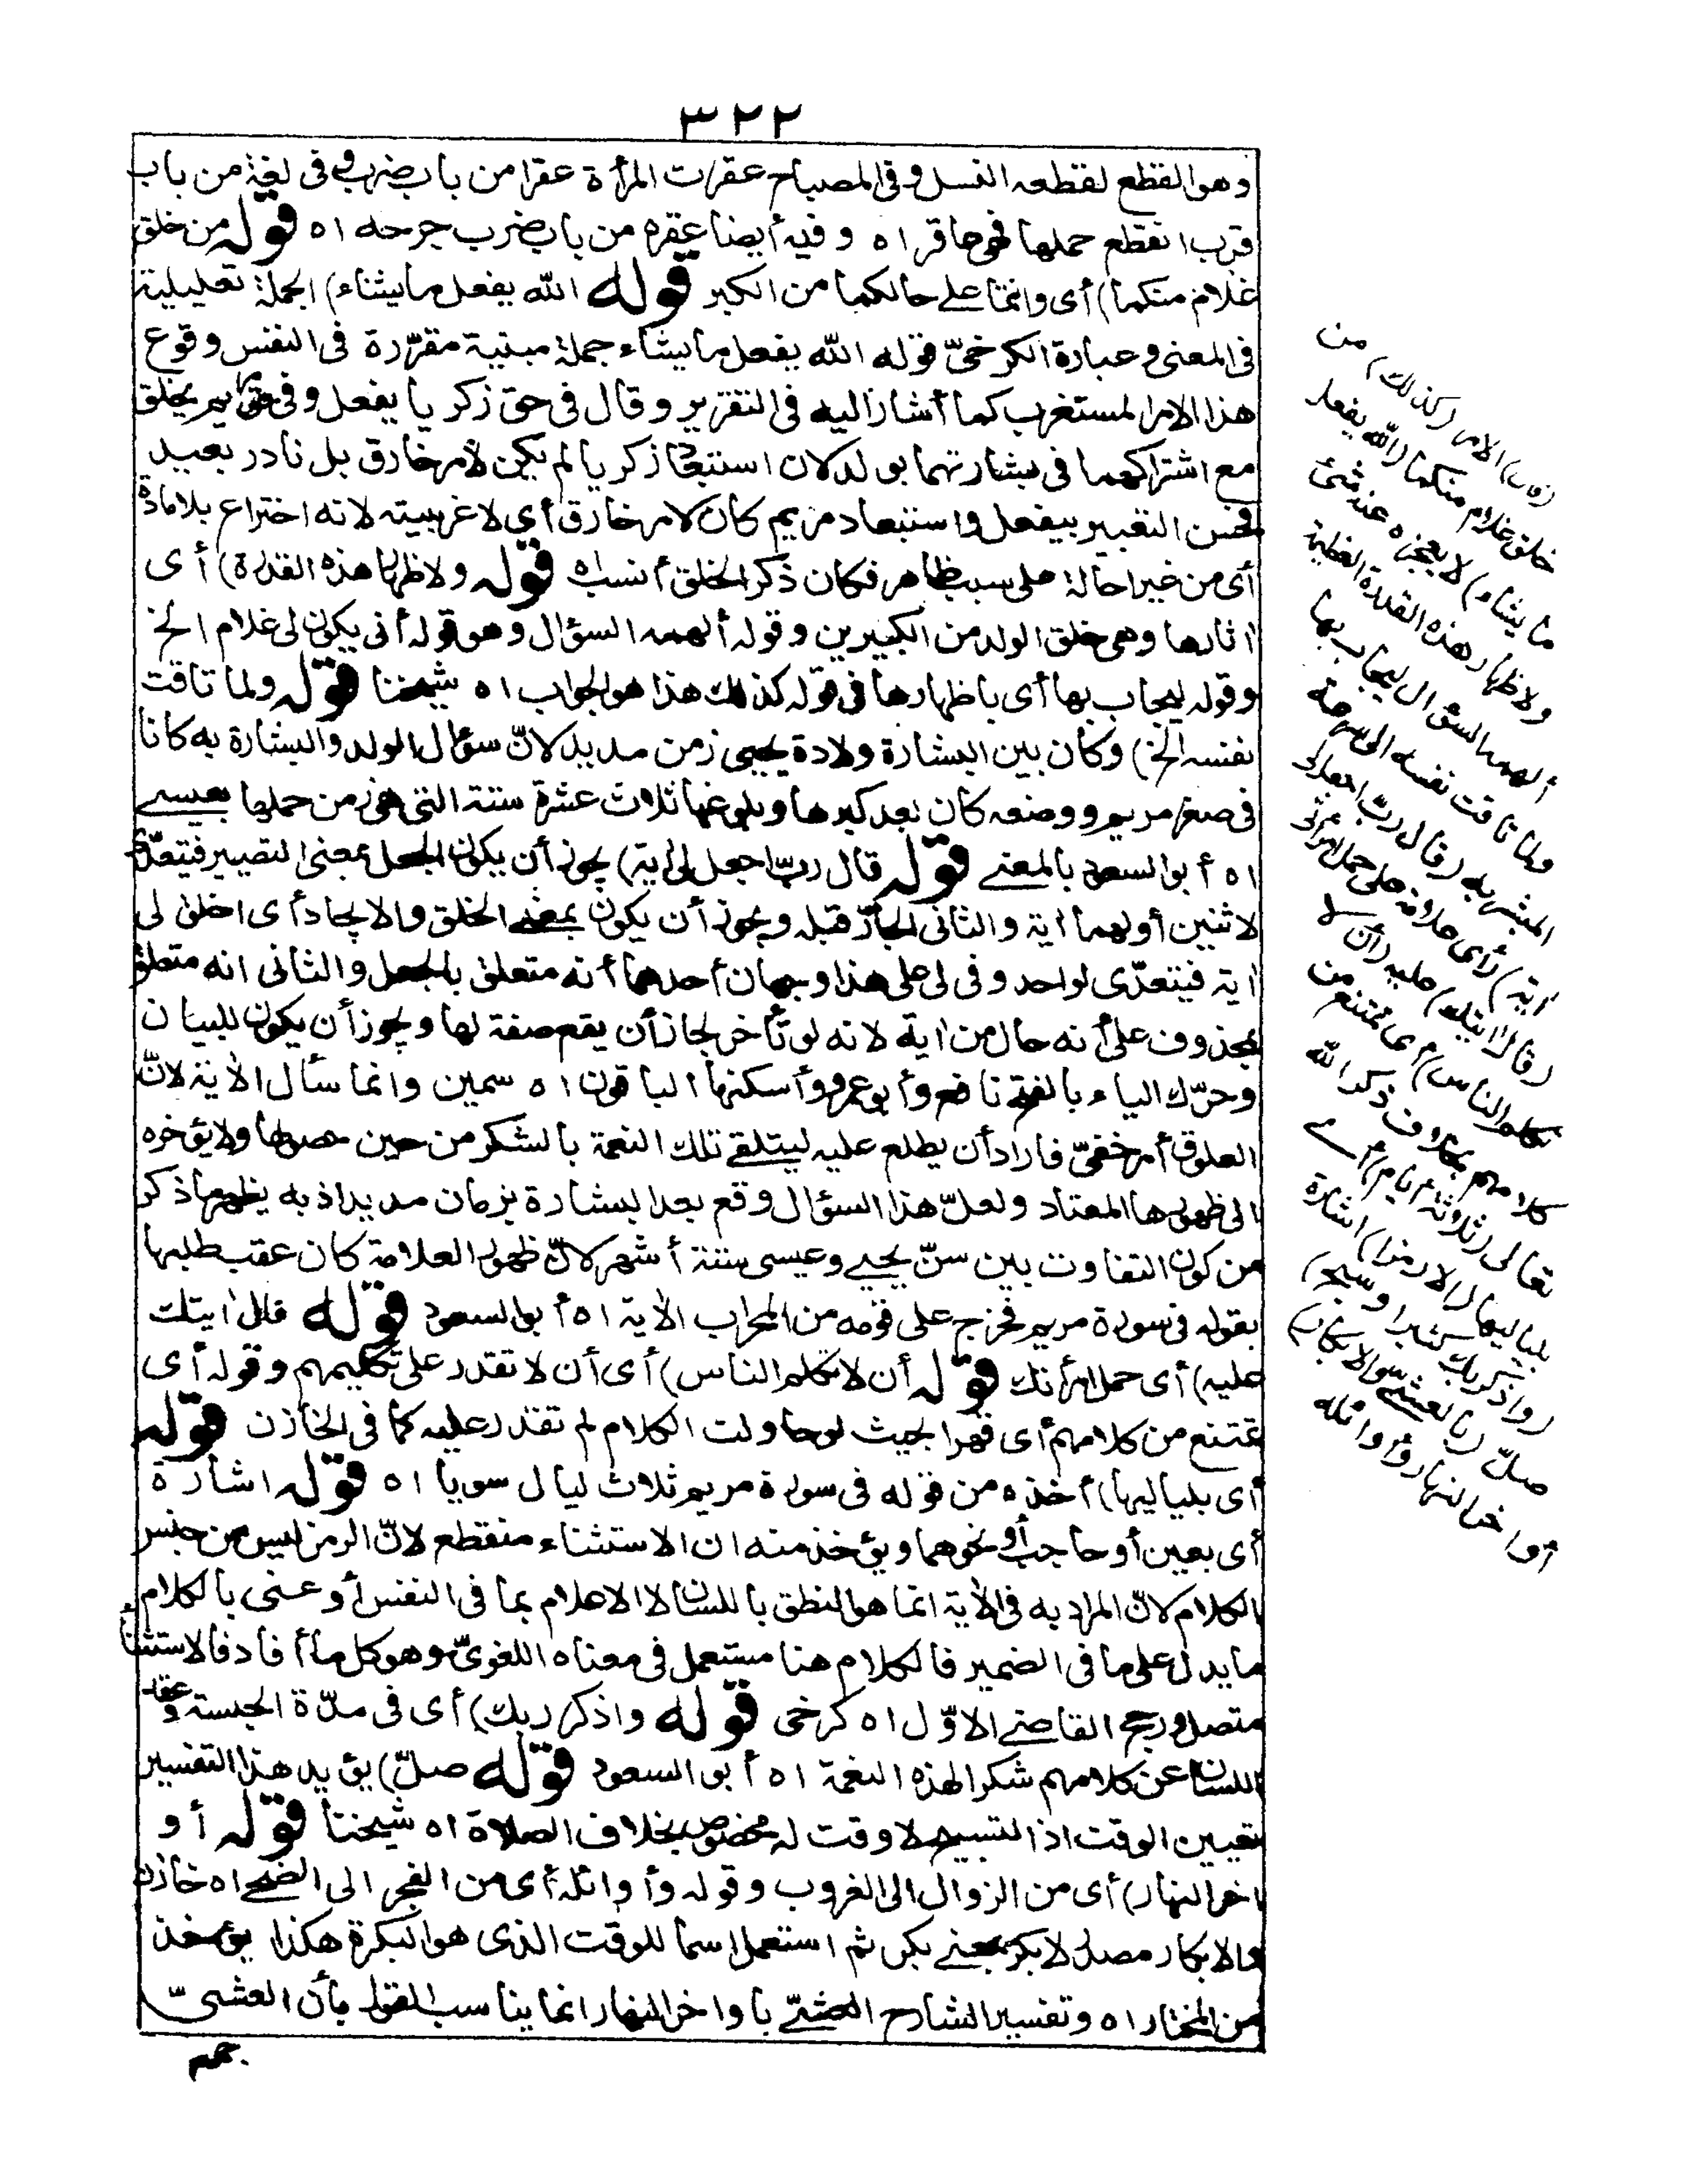 ٣٢٢
وهو القطع لقطعه النسل وفى المصباح عقرت المرأة عقرا من باب ضرب وفى لغة من باب
قرب انقطع حملها فهى عاقر اه وفيه أيضا عقره من باب ضرب جرحه اه قوله من خلق
غلام منكما) أى وانتما على حالكما من الكبر قوله الله يفعل ما يشاء) الجملة تعليلية
فى المعنى وعبارة الكرخىّ قوله الله يفعل ما يشاء جملة مبنية مقرّرة فى النفس وقوع
هذا الامر المستغرب كما أشار اليه فى التقرير وقال فى حق زكريا يفعل وفى حق مريم يخلق
مع اشتراكهما فى بشارتهما بولد لان استبعاد زكريا لم يكن لأمر خارق بل نادر بعيد
فحسن التعبير بيفعل واستبعاد مريم كان لامر خارق أى لا غربيته لانه اختراع بلا مادة
أى من غير احالة على سبب ظاهر فكان ذكر الخلق أنسب اه قوله ولاظهار هذه القدرة) أى
اثارها وهى خلق الولد من الكبيرين وقوله ألهمه السؤال وهو قوله أنى يكون لى غلام الخ
وقوله ليجاب بها أى باظهارها فى قوله كذلك هذا هو الجواب اه شيخنا قوله ولما تاقت
نفسه الخ) وكان بين البشارة وولادة يحيى زمن مديد لانّ سؤال الولد والبشارة به كانا
فى صغر مريم ووضعه كان بعد كبرها وبلوغها ثلاث عشرة سنة التى هى زمن حملها بعيسى
اه أبو السعود بالمعنى قوله قال ربّ اجعل لى اية) يجوز أن يكون الجعل بمعنى التصيير فيتعدّى
لاثنين أولهما اية والثانى الجارّ قبله ويجوز أن يكون بمعنى الخلق والايجاد أى اخلق لى
اية فيتعدّى لواحد وفى لى على هذا وجهان أحدهما أنه متعلق بالجعل والثانى انه متعلق
بمحذوف على أنه حال من اية لانه لو تأخر لجاز أن يقع صفة لها ويجوز أن يكون للبيان
وحرّك الياء بالفتح نافع وأبو عمرو وأسكنها الباقون اه سمين وانما سأل الاية لانّ
العلوق أمر خفىّ فاراد أن يطلع عليه ليتلقى تلك النعمة بالشكر من حين حصولها ولا يؤخره
الى ظهورها المعتاد ولعلّ هذا السؤال وقع بعد البشارة بزمان مديد اذ به يظهر ما ذكر
من كون التفاوت بين سنّ يحيى وعيسى ستة أشهر لانّ ظهور العلامة كان عقب طلبها
بقوله فى سورة مريم فخرج على قومه من المحراب الاية اه أبو السعود قوله قال ايتك
عليه) أى حمل امرأتك قوله أن لا تكلم الناس) أى أن لا تقدر على تكليمهم وقوله أى
تمتنع من كلامهم أى قهرا بحيث لو حاولت الكلام لم تقدر عليه كما فى الخازن قوله
أى بلياليها) أخذه من قوله فى سورة مريم ثلاث ليال سويا اه قوله اشارة
أى بعين أو حاجب أو نحوهما ويؤخذ منه ان الاستثناء منقطع لانّ الرمز ليس من جنس
الكلام لانّ المراد به فى الاية انما هو النطق باللسان لا الاعلام بما فى النفس أو عنى بالكلام
ما يدل على ما فى الضمير فالكلام هنا مستعمل فى معناه اللغوىّ وهو كل ما أفاد فالاستثناء
متصل ورجح القاضى الاوّل اه كرخى قوله واذكر ربك) أى فى مدّة الحبسة وعقد
اللسان عن كلامهم شكرا لهذه النعمة اه أبو السعود قوله صلّ) يؤيد هذا التفسير
تعيين الوقت اذ التسبيح لا وقت له مخصوص بخلاف الصلاة اه شيخنا قوله أو
اخر النهار) أى من الزوال الى الغروب وقوله وأوائله أى من الفجر الى الضحى اه خازن
والابكار مصدر لابكر بمعنى بكر ثم استعمل اسما للوقت الذى هو البكرة هكذا يؤخذ
من المختار اه وتفسير الشارح العشىّ باواخر النهار انما يناسب القول بأن العشىّ
(قال) الامر (كذلك) من
خلق غلام منكما (الله يفعل
ما يشاء) لا يعجزه عنه شئ
ولاظهار هذه القدرة العظيمة
ألهمه السؤال ليجاب بها
ولما تاقت نفسه الى سرعة
المبشر به (قال ربّ اجعل لى
اية) أى علامة على حمل امرأتى
(قال ايتك) عليه (أن لا
تكلم الناس) أى تمتنع من
كلامهم بخلاف ذكر الله
تعالى (ثلاثة أيام) أى
بلياليها (الا رمزا) اشارة
(واذكر ربك كثيرا وسبح)
صلّ (بالعشىّ والابكار)
أواخر النهار وأوائله